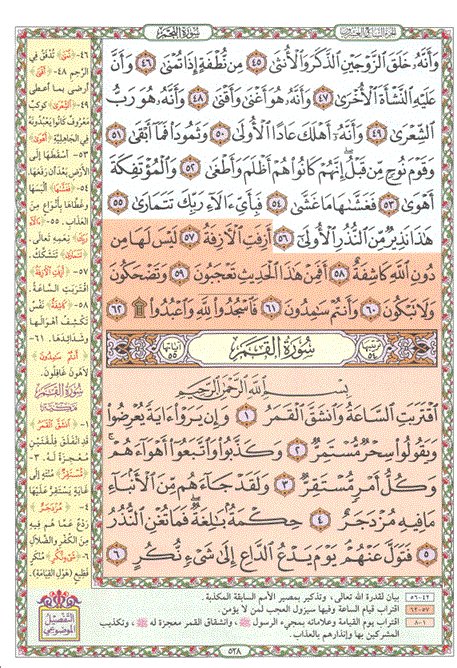 الجزء السابع والعشرون
سُورَةُ النَّجْمِ
وَأَنَّهُۥ خَلَقَ ٱلزَّوْجَيْنِ ٱلذَّكَرَ وَٱلْأُنثَىٰ ٤٥ مِن نُّطْفَةٍ إِذَا تُمْنَىٰ ٤٦ وَأَنَّ
عَلَيْهِ ٱلنَّشْأَةَ ٱلْأُخْرَىٰ ٤٧ وَأَنَّهُۥ هُوَ أَغْنَىٰ وَأَقْنَىٰ ٤٨ وَأَنَّهُۥ هُوَ رَبُّ
ٱلشِّعْرَىٰ ٤٩ وَأَنَّهُۥٓ أَهْلَكَ عَادًا ٱلْأُولَىٰ ٥٠ وَثَمُودَا۟ فَمَآ أَبْقَىٰ ٥١
وَقَوْمَ نُوحٍ مِّن قَبْلُ ۖ إِنَّهُمْ كَانُوا۟ هُمْ أَظْلَمَ وَأَطْغَىٰ ٥٢ وَٱلْمُؤْتَفِكَةَ
أَهْوَىٰ ٥٣ فَغَشَّىٰهَا مَا غَشَّىٰ ٥٤ فَبِأَىِّ ءَالَآءِ رَبِّكَ تَتَمَارَىٰ ٥٥
هَٰذَا نَذِيرٌ مِّنَ ٱلنُّذُرِ ٱلْأُولَىٰٓ ٥٦ أَزِفَتِ ٱلْأَزِفَةُ ٥٧ لَيْسَ لَهَا مِن
دُونِ ٱللَّهِ كَاشِفَةٌ ٥٨ أَفَمِنْ هَٰذَا ٱلْحَدِيثِ تَعْجَبُونَ ٥٩ وَتَضْحَكُونَ
وَلَا تَبْكُونَ ٦٠ وَأَنتُمْ سَٰمِدُونَ ٦١ فَٱسْجُدُوا۟ لِلَّهِ وَٱعْبُدُوا۟ ۩ ٦٢
ترتيبها ٥٤ سُورَةُ القَمَرِ آياتها ٥٥
بِسْمِ ٱللَّهِ ٱلرَّحْمَٰنِ ٱلرَّحِيمِ
ٱقْتَرَبَتِ ٱلسَّاعَةُ وَٱنشَقَّ ٱلْقَمَرُ ١ وَإِن يَرَوْا۟ ءَايَةً يُعْرِضُوا۟
وَيَقُولُوا۟ سِحْرٌ مُّسْتَمِرٌّ ٢ وَكَذَّبُوا۟ وَٱتَّبَعُوٓا۟ أَهْوَآءَهُمْ ۚ
وَكُلُّ أَمْرٍ مُّسْتَقِرٌّ ٣ وَلَقَدْ جَآءَهُم مِّنَ ٱلْأَنۢبَآءِ
مَا فِيهِ مُزْدَجَرٌ ٤ حِكْمَةٌۢ بَٰلِغَةٌ ۖ فَمَا تُغْنِ ٱلنُّذُرُ
٥ فَتَوَلَّ عَنْهُمْ ۘ يَوْمَ يَدْعُ ٱلدَّاعِ إِلَىٰ شَىْءٍ نُّكُرٍ ٦
٤٦- ﴿تُمْنَى﴾ تُدْفَقُ فِي
الرَّحِمِ ٤٨- ﴿أَقْنَى﴾
أَرْضَى بِمَا أَعْطَى
﴿الشِّعْرَى﴾ كَوْكَبٌ
مَعْرُوفٌ كَانُوا يَعْبُدُونَهُ
فِي الجَاهِلِيَّةِ ﴿أَهْوَى﴾
٥٣- أَسْقَطَهَا إِلَى
الأَرْضِ بَعْدَ أَنْ رَفَعَهَا.
٥٤- ﴿فَغَشَّىٰهَا﴾ أَلْبَسَهَا
وَغَطَّاهَا بِأَنْوَاعٍ مِنَ
العَذَابِ. ٥٥- ﴿ءَالَآءِ
رَبِّكَ﴾ نِعَمِهِ تَعَالَى.
﴿تَتَمَارَى﴾ تَتَشَكَّكُ.
٥٧- ﴿أَزِفَتِ ٱلْأَزِفَةُ﴾
اقْتَرَبَتِ السَّاعَةُ.
٥٨- ﴿كَاشِفَةٌ﴾ نَفْسٌ
تَكْشِفُ أَهْوَالَهَا
وَشَدَائِدَهَا. ٦١-
﴿أَنتُمْ سَٰمِدُونَ﴾
لَاهُونَ غَافِلُونَ.
سُورَةُ القَمَرِ
مَكِّيَّة
١- ﴿ٱنشَقَّ ٱلْقَمَرُ﴾
قَدِ انْفَلَقَ فِلْقَتَيْنِ
مُعْجِزَةً لَهُ ﷺ. ٣-
﴿مُسْتَقِرٌّ﴾ مُنْتَهٍ إِلَى
غَايَةٍ يَسْتَقِرُّ عَلَيْهَا
٤- ﴿مُزْدَجَرٌ﴾
رَدْعٌ عَمَّا هُمْ فِيهِ
مِنَ الكُفْرِ وَالضَّلَالِ
٦- ﴿شَيْءٍ نُكُرٍ﴾ مُنْكَرٍ
فَظِيعٍ (هَوْلِ القِيَامَةِ).
التفصيل الموضوعي
٤٢-٥٦ بيان لقدرة الله تعالى، وتذكير بمصير الأمم السابقة المكذبة.
٥٧-٦٢ اقتراب قيام الساعة وفيها سيزول العجب لمن لا يؤمن.
١-٨ اقتراب يوم القيامة وعلاماته بمجيء الرسول ﷺ، وانشقاق القمر معجزة له ﷺ، وتكذيب
المشركين بها وإنذارهم بالعذاب.
٥٢٨